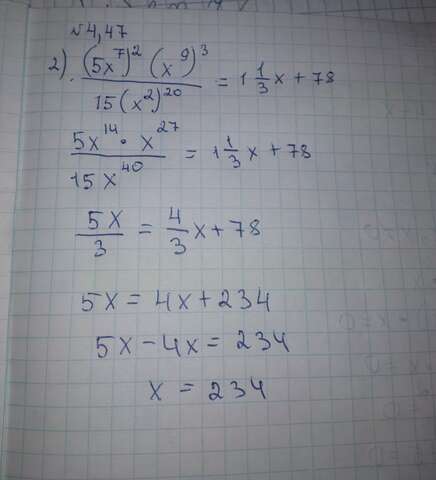 №4,47
2). (5x⁷)² (x⁹)³ / 15(x²)²⁰ = 1 1/3 x + 78
5x¹⁴ · x²⁷ / 15x⁴⁰ = 1 1/3 x + 78
5x / 3 = 4/3 x + 78
5x = 4x + 234
5x - 4x = 234
x = 234